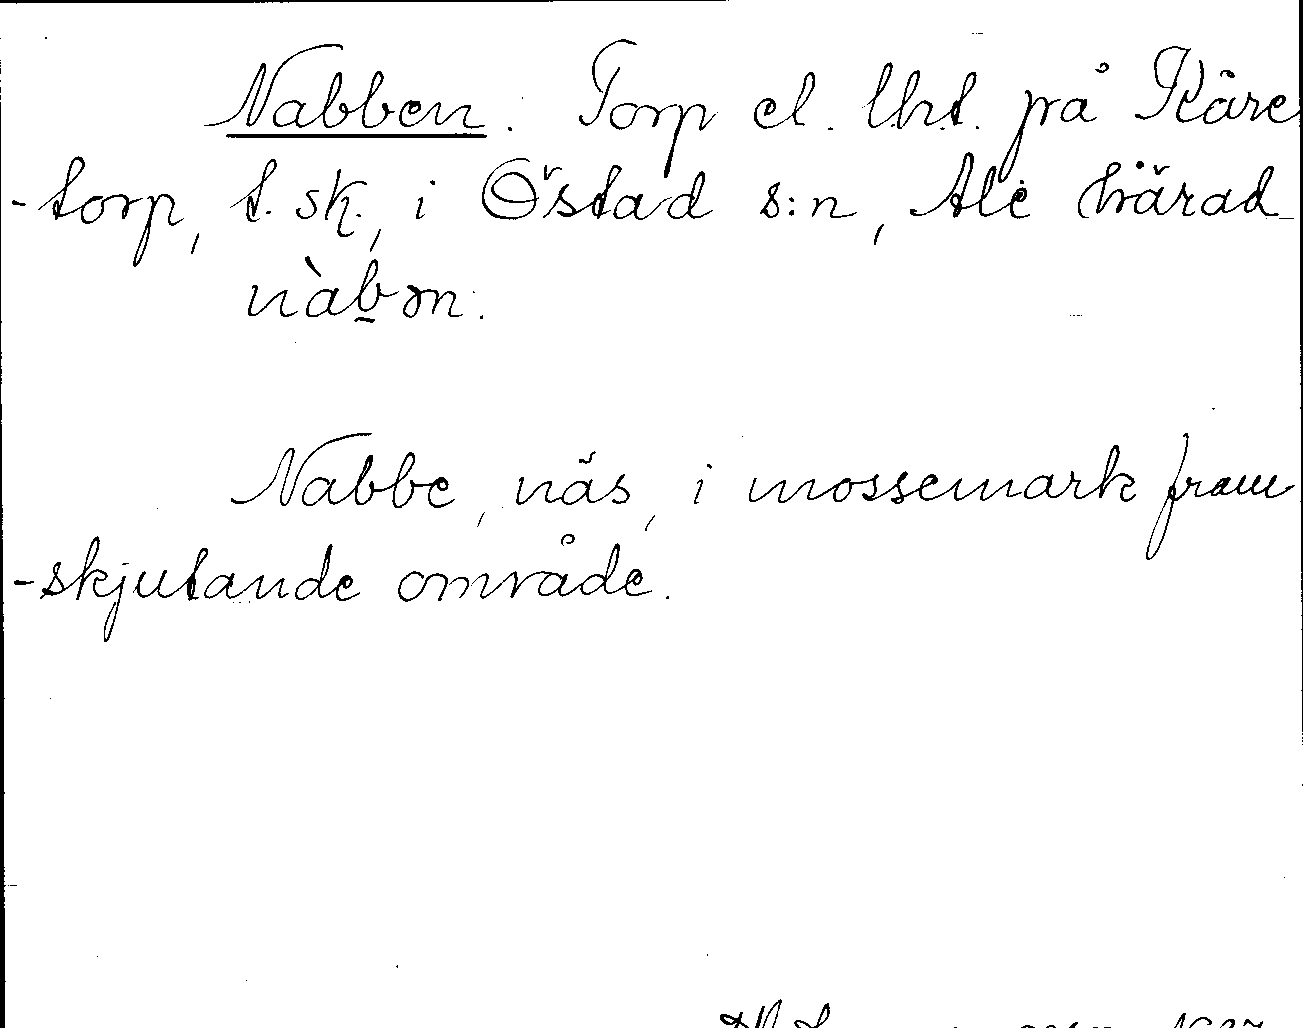 Nabben. Torp el. lht. på Käre
-torp, t. sk., i Östad s:n, Ale härad
nàbən.
Nabbe, näs, i mossemark fram
-skjutande område.